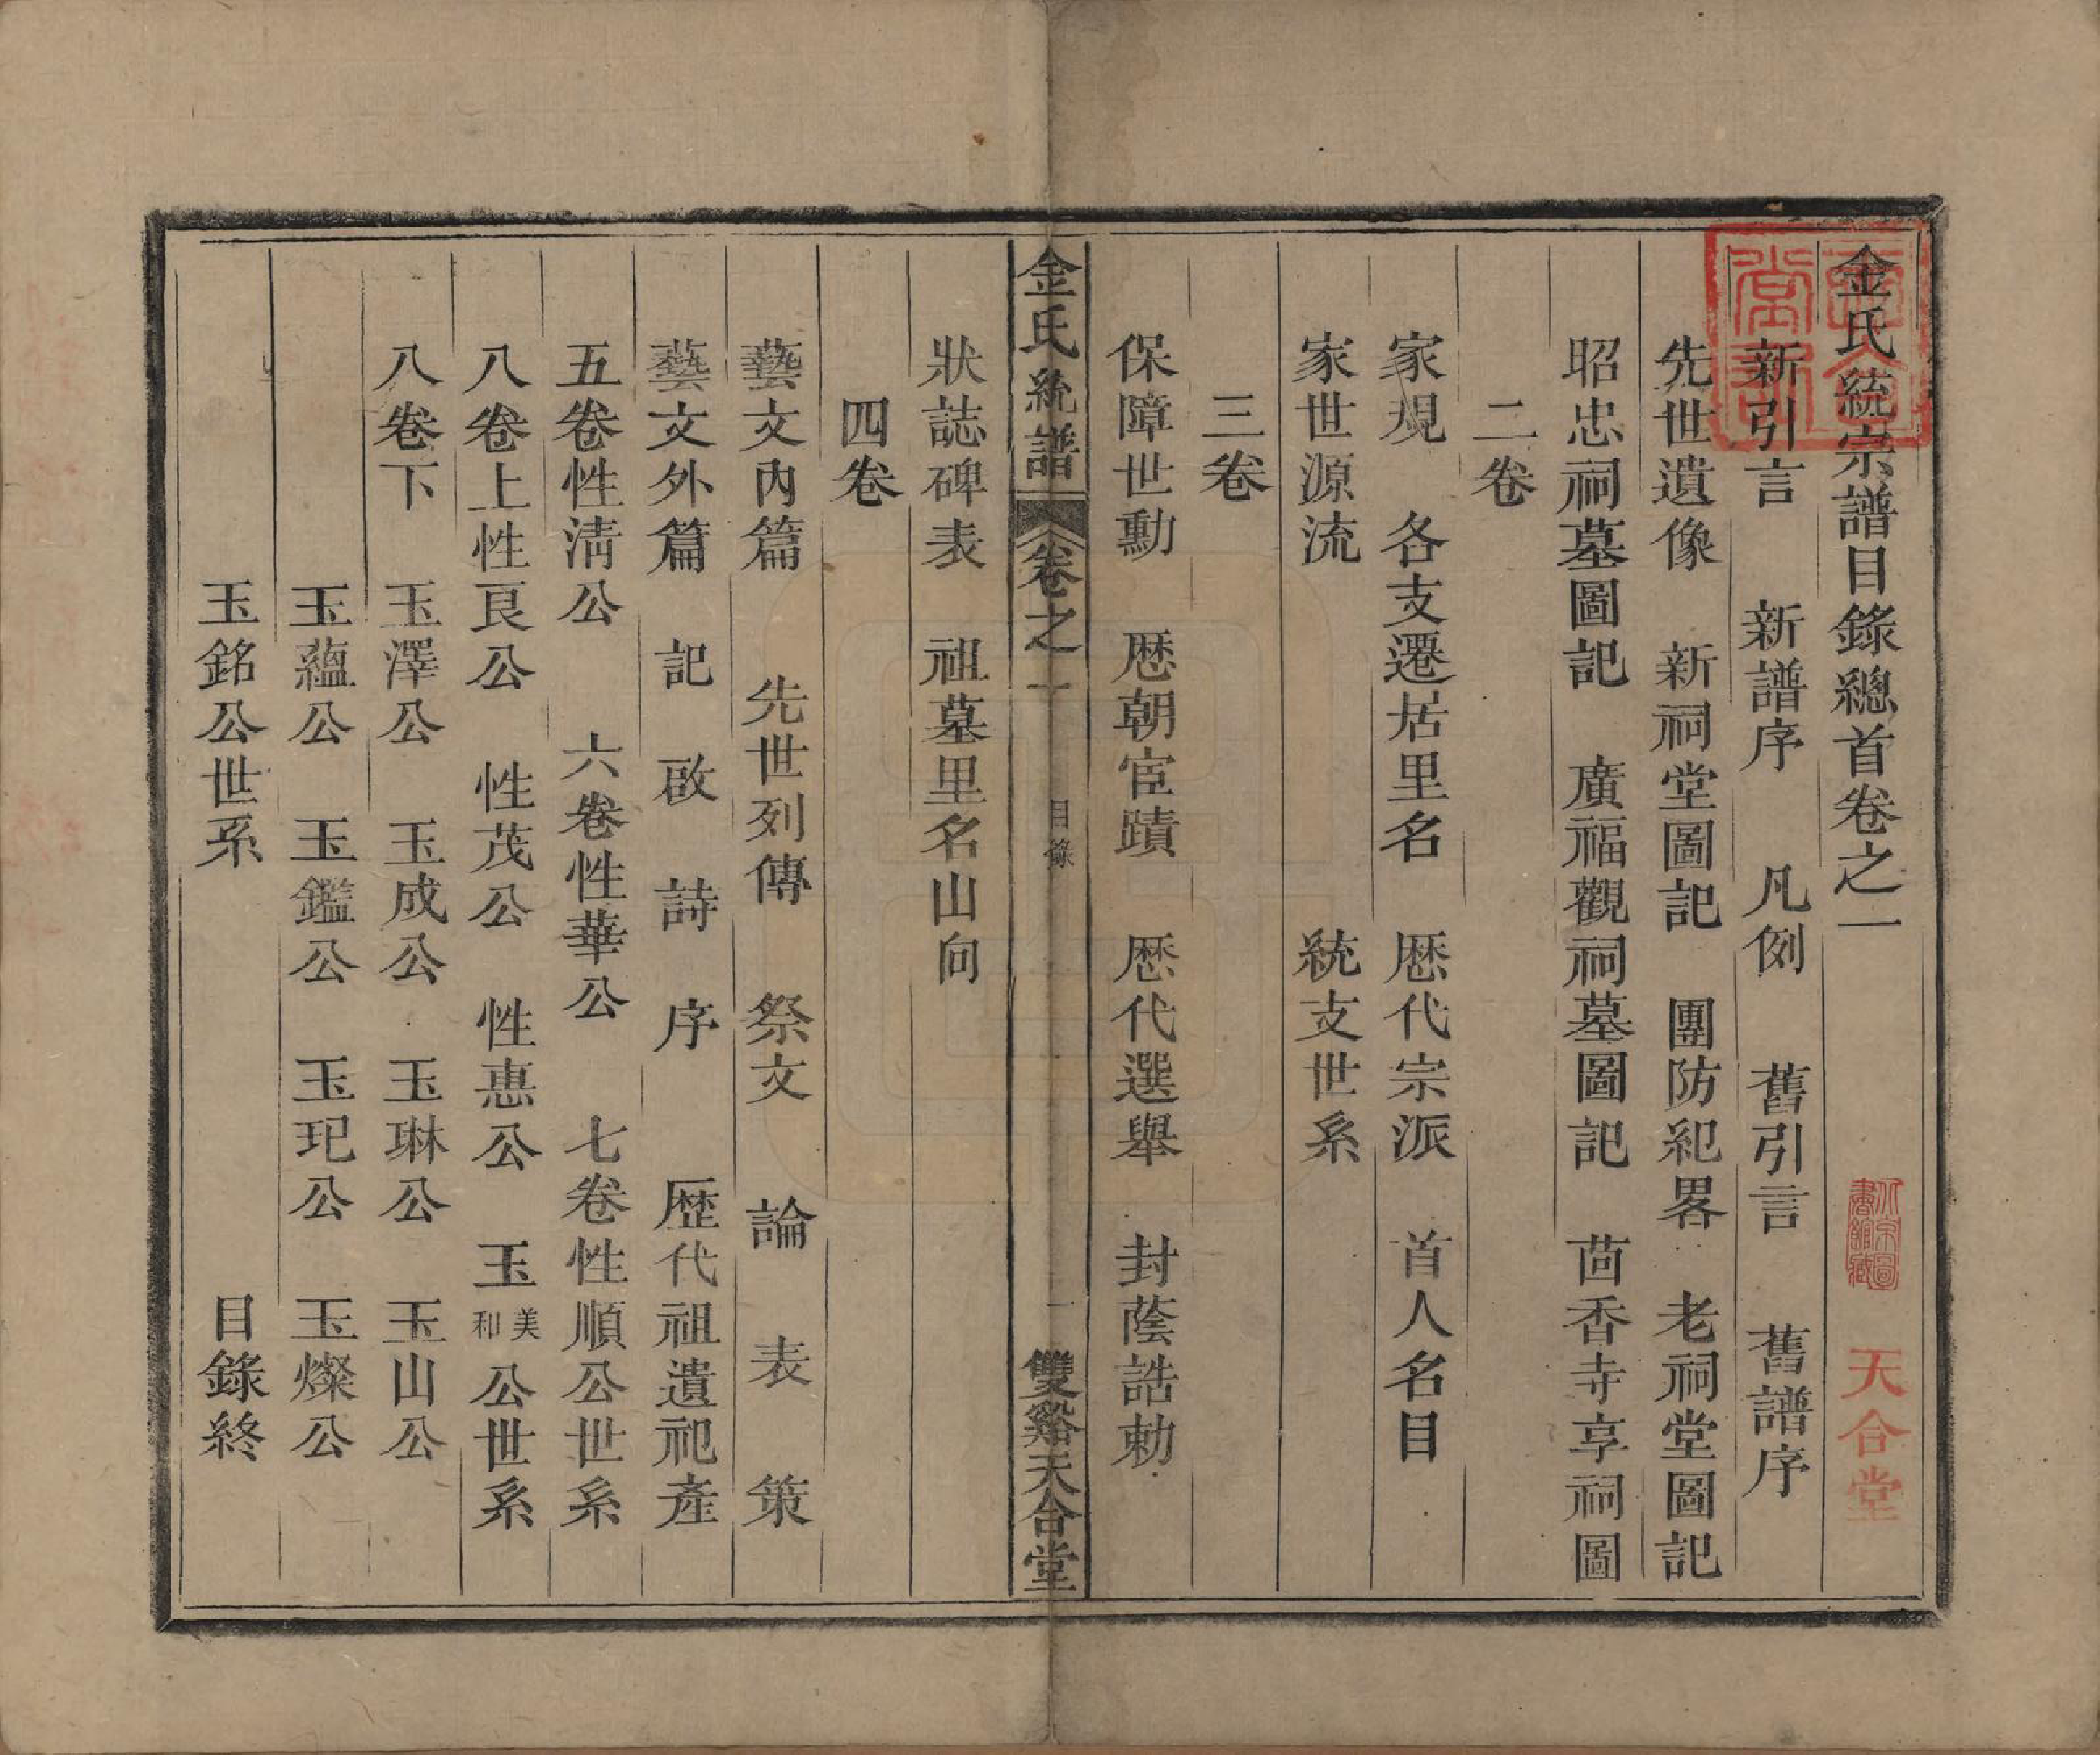 金氏統宗譜目錄總首卷之一
天合堂
新引言 新譜序 凡例 舊引言 舊譜序
先世遺像 新祠堂圖記 團防紀畧 老祠堂圖記
昭忠祠墓圖記 廣福觀祠墓圖記 茴香寺享祠圖
二卷
家規 各支遷居里名 歷代宗派 首人名目
家世源流 統支世系
三卷
保障世勳 歷朝宦蹟 歷代選舉 封蔭誥勅
金氏統譜 卷之一 目錄 一 雙谿天合堂
狀誌碑表 祖墓里名山向
四卷
藝文內篇 先世列傳 祭文 論 表 策
藝文外篇 記 啟 詩 序 歷代祖遺祀產
五卷性淸公 六卷性華公 七卷性順公世系
八卷上性良公 性茂公 性惠公 玉美和公世系
八卷下 玉澤公 玉成公 玉琳公 玉山公
玉蘊公 玉鑑公 玉玘公 玉燦公
玉銘公世系 目錄終